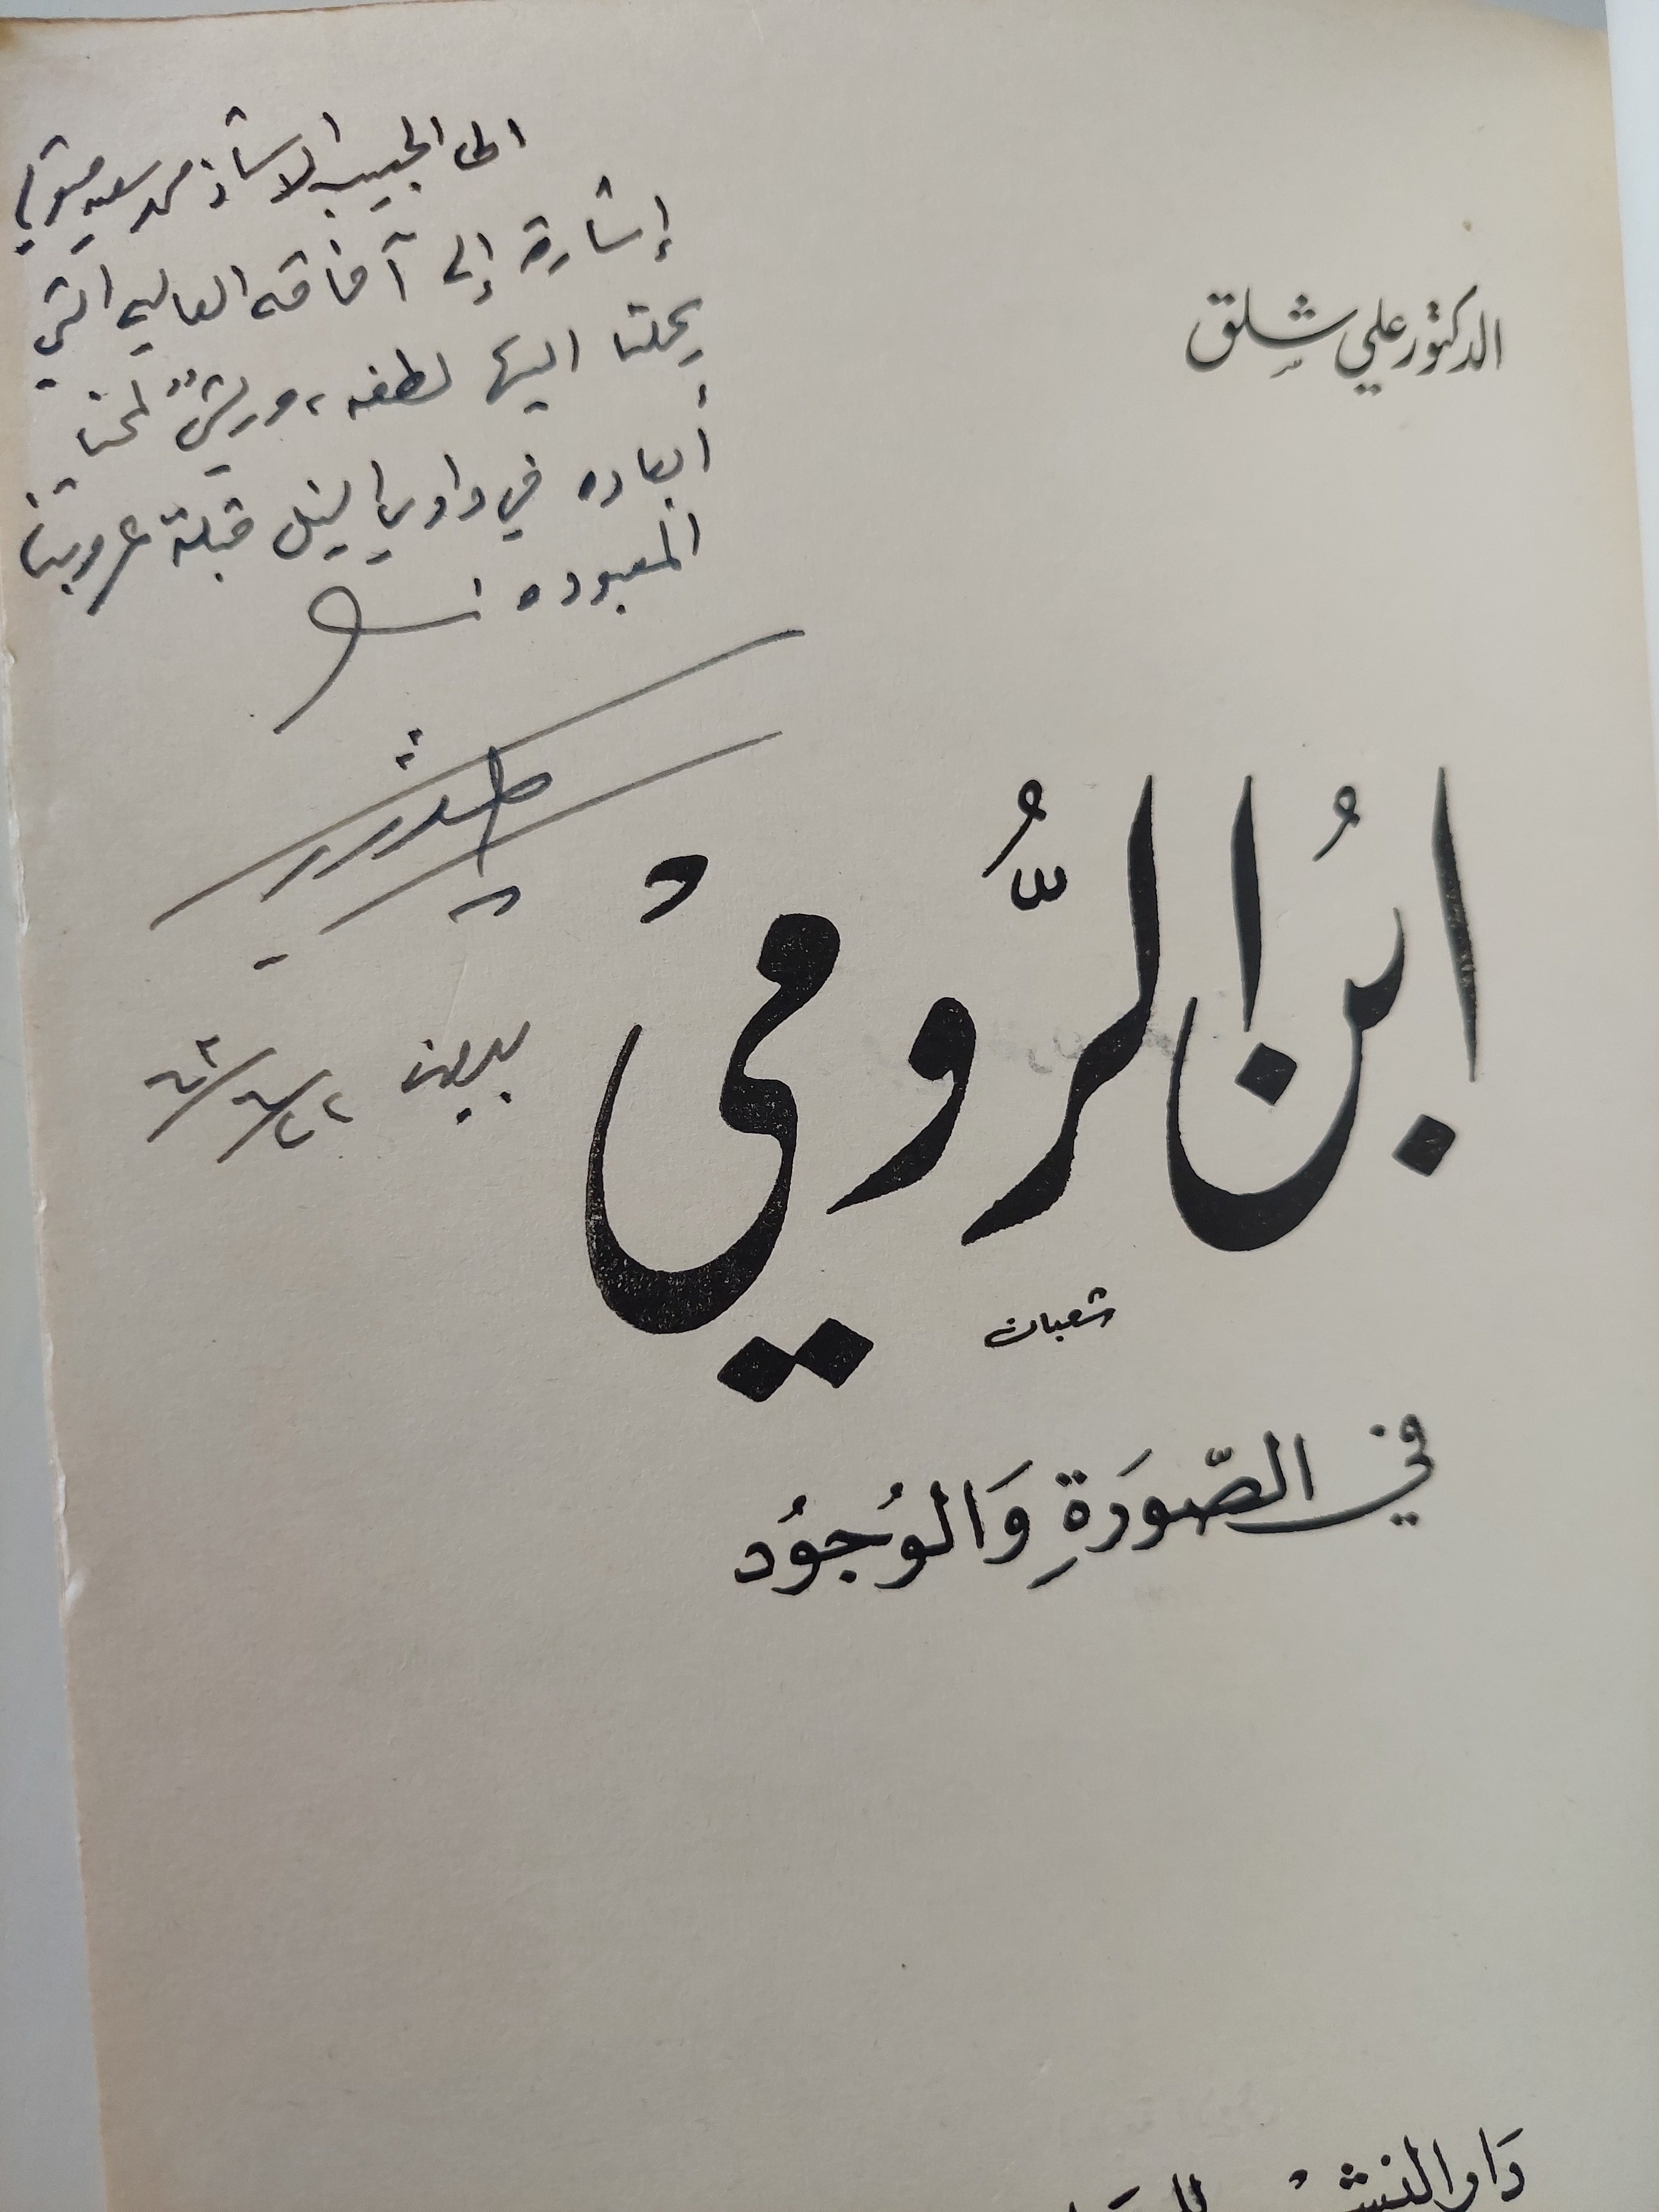 الى الحبيب الاستاذ محمد سعيد
إشارة إلى آفاقه العاليه التي
يحملنا اليها لطفه، و
أبعاده في وادي النيل قبلة عروبتنا
المعبوده
بيروت ٢٢/٦/٦٣
الدكتور علي شلق
ابُن الرُّومي
شعبان
في الصّورَةِ وَالوُجوُد
دَار النشر